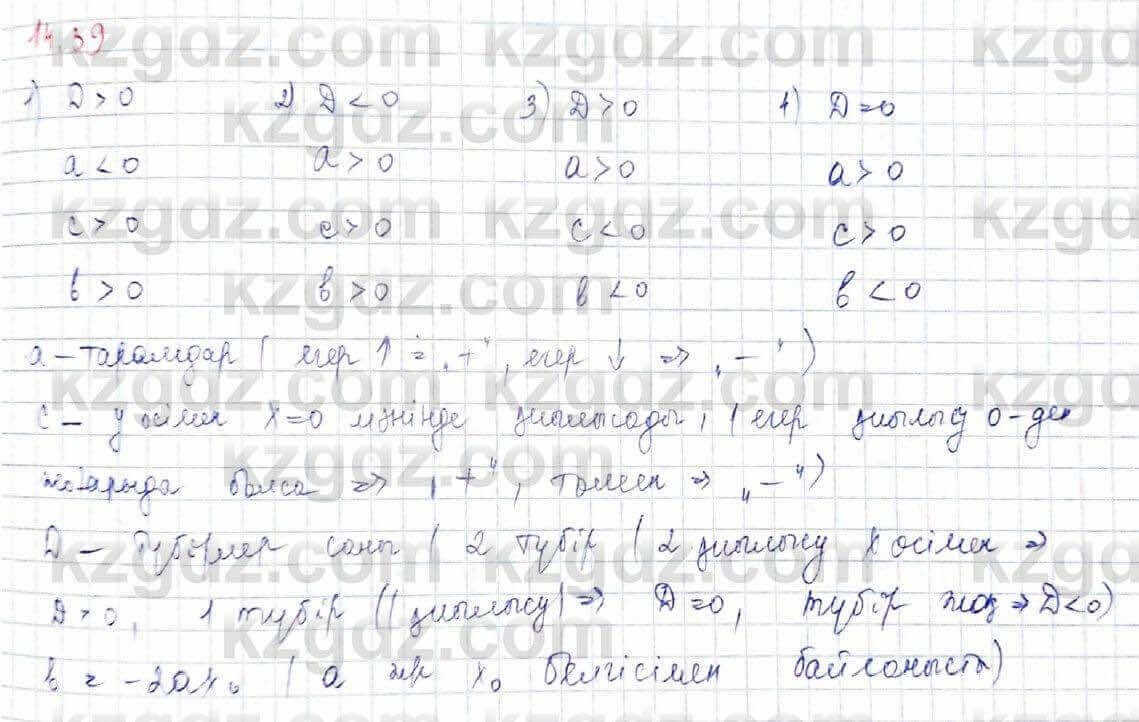 14.39
1) D > 0 2) D < 0 3) D > 0 4) D = 0
a < 0 a > 0 a > 0 a > 0
c > 0 c > 0 c < 0 c > 0
b > 0 b > 0 b < 0 b < 0
a – тармақтар ( егер ↑ = „+", егер ↓ => „–")
c – y осімен x=0 мәнінде қиылысады, ( егер қиылысу 0-ден
жоғарыда болса => „+", төмен => „–")
D – түбірлер саны ( 2 түбір ( 2 қиылысу x осімен =>
D > 0, 1 түбір (1 қиылысу) => D = 0, түбір жоқ => D < 0)
b = -2ax₀ ( a және x₀ белгісімен байланысты)
kzgdz.com